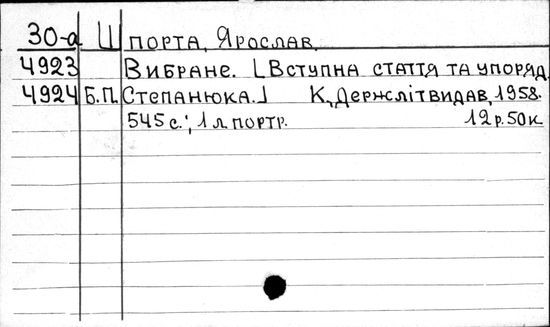 30-а Шпорта, Ярослав.
4923 Вибране. [Вступна стаття та упоряд.
4924 Б.П. Степанюка.] К., Держлітвидав, 1958.
545 с.; 1 л портр. 12 р. 50 к